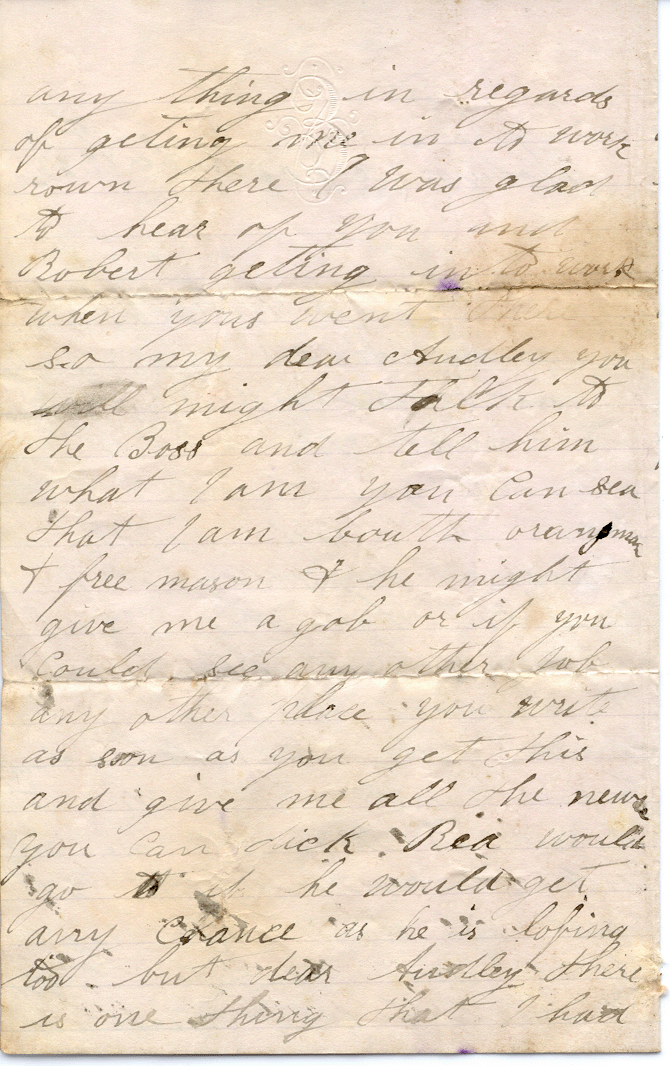 any thing in regards
of geting me in to work
rown there I was glad
to hear of you and
Robert geting in to work
when yous went there
so my dear Audley you
will might talk to
the Boss and tell him
what I am you Can sea
that I am bouth orangman
& free mason & he might
give me a gob or if you
Could see any other Job
any other place you write
as soon as you get this
and give me all the news
you Can dick Rea would
go to if he would get
any Chance as he is lofing
too but dear Audley there
is one thing that I had